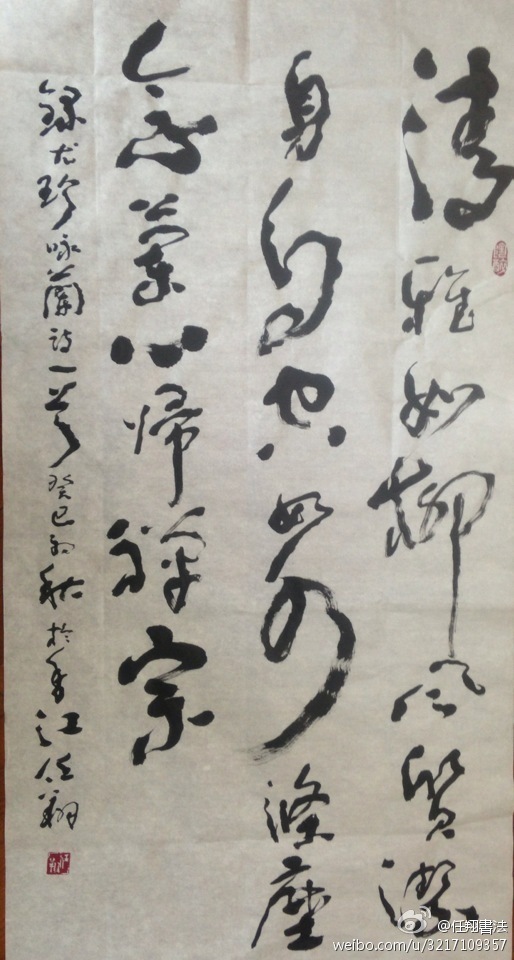 清雅如柳風質潔
身自空如可滌塵
念蘭心歸禪宗
錄尤珍咏蘭詩一首癸巳初秋於香江任翔
@任翔書法
weibo.com/u/3217109357